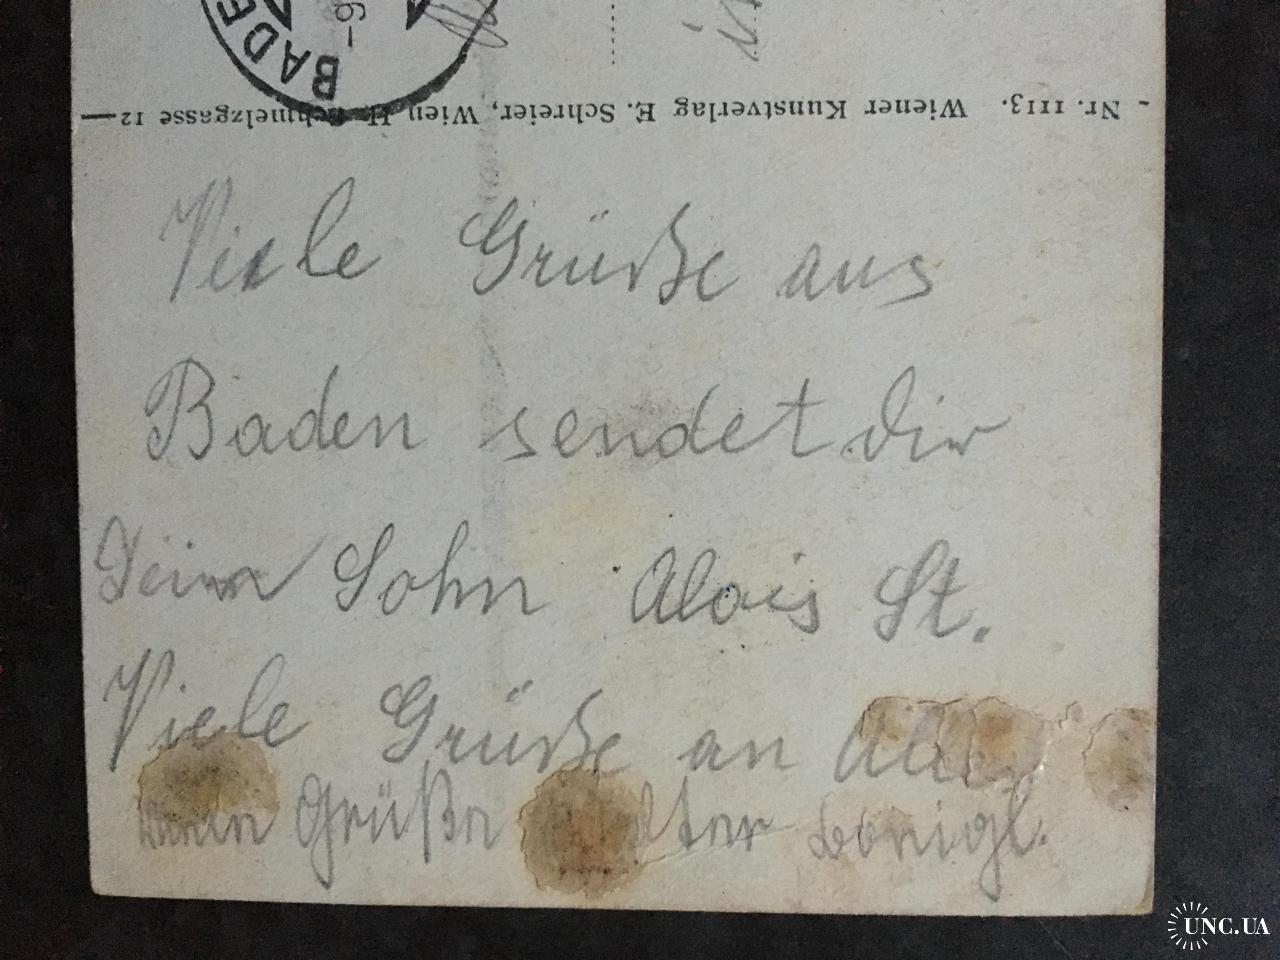 BADE
-9
in
- Nr. 1113. Wiener Kunstverlag E. Schreier, Wien II. Schmelzgasse 12 —
Viele Grüße aus
Baden sendet dir
Dein Sohn Alois St.
Viele Grüße an Alle
Grüße
UNC.UA